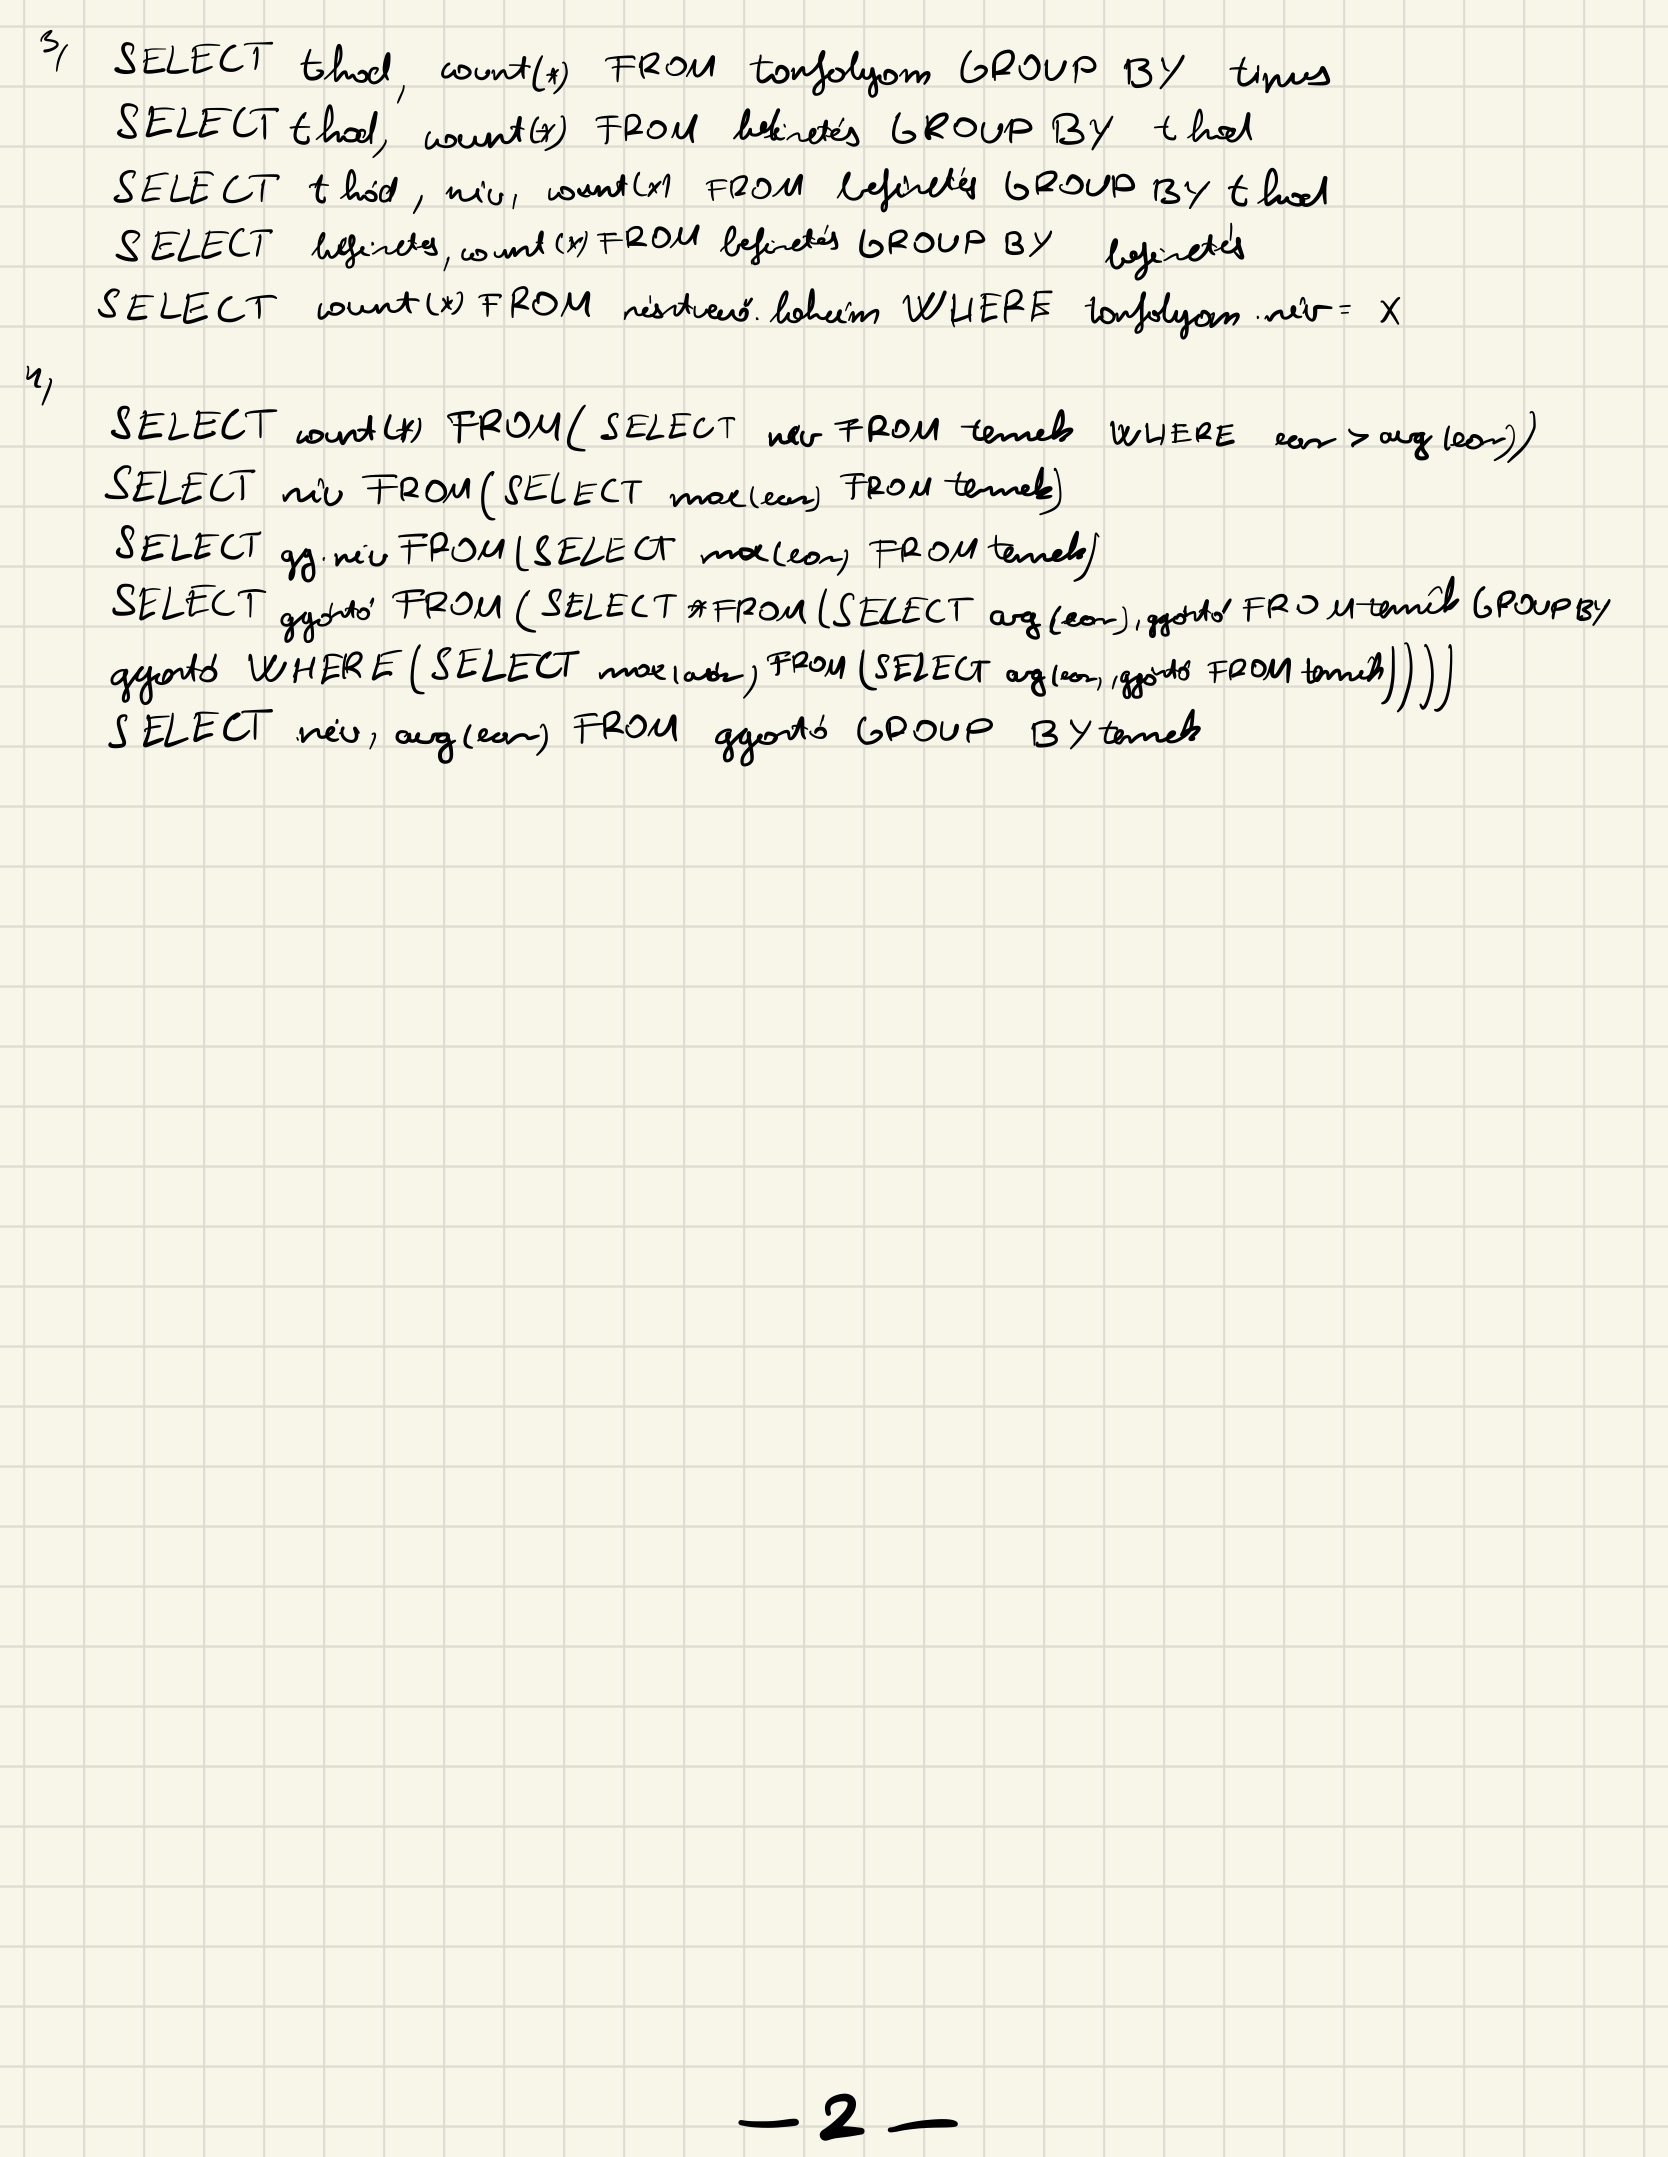 3,
SELECT tkod, count(*) FROM tanfolyam GROUP BY tipus
SELECT tkod, count(*) FROM befizetés GROUP BY tkod
SELECT tkód, név, count(*) FROM befizetés GROUP BY tkod
SELECT befizetes, count(*) FROM befizetés GROUP BY befizetés
SELECT count(*) FROM résztvevő.lakcím WHERE tanfolyam.név = X
4,
SELECT count(*) FROM (SELECT nev FROM termek WHERE ear > avg(ear))
SELECT név FROM (SELECT max(ear) FROM termek)
SELECT gy.név FROM (SELECT max(ear) FROM termek)
SELECT gyártó FROM (SELECT * FROM (SELECT avg(ear), gyártó FROM termék GROUP BY
gyartó WHERE (SELECT max( ) FROM (SELECT avg(ear, gyártó FROM termék))))
SELECT név, avg(ear) FROM gyartó GROUP BY termek
— 2 —